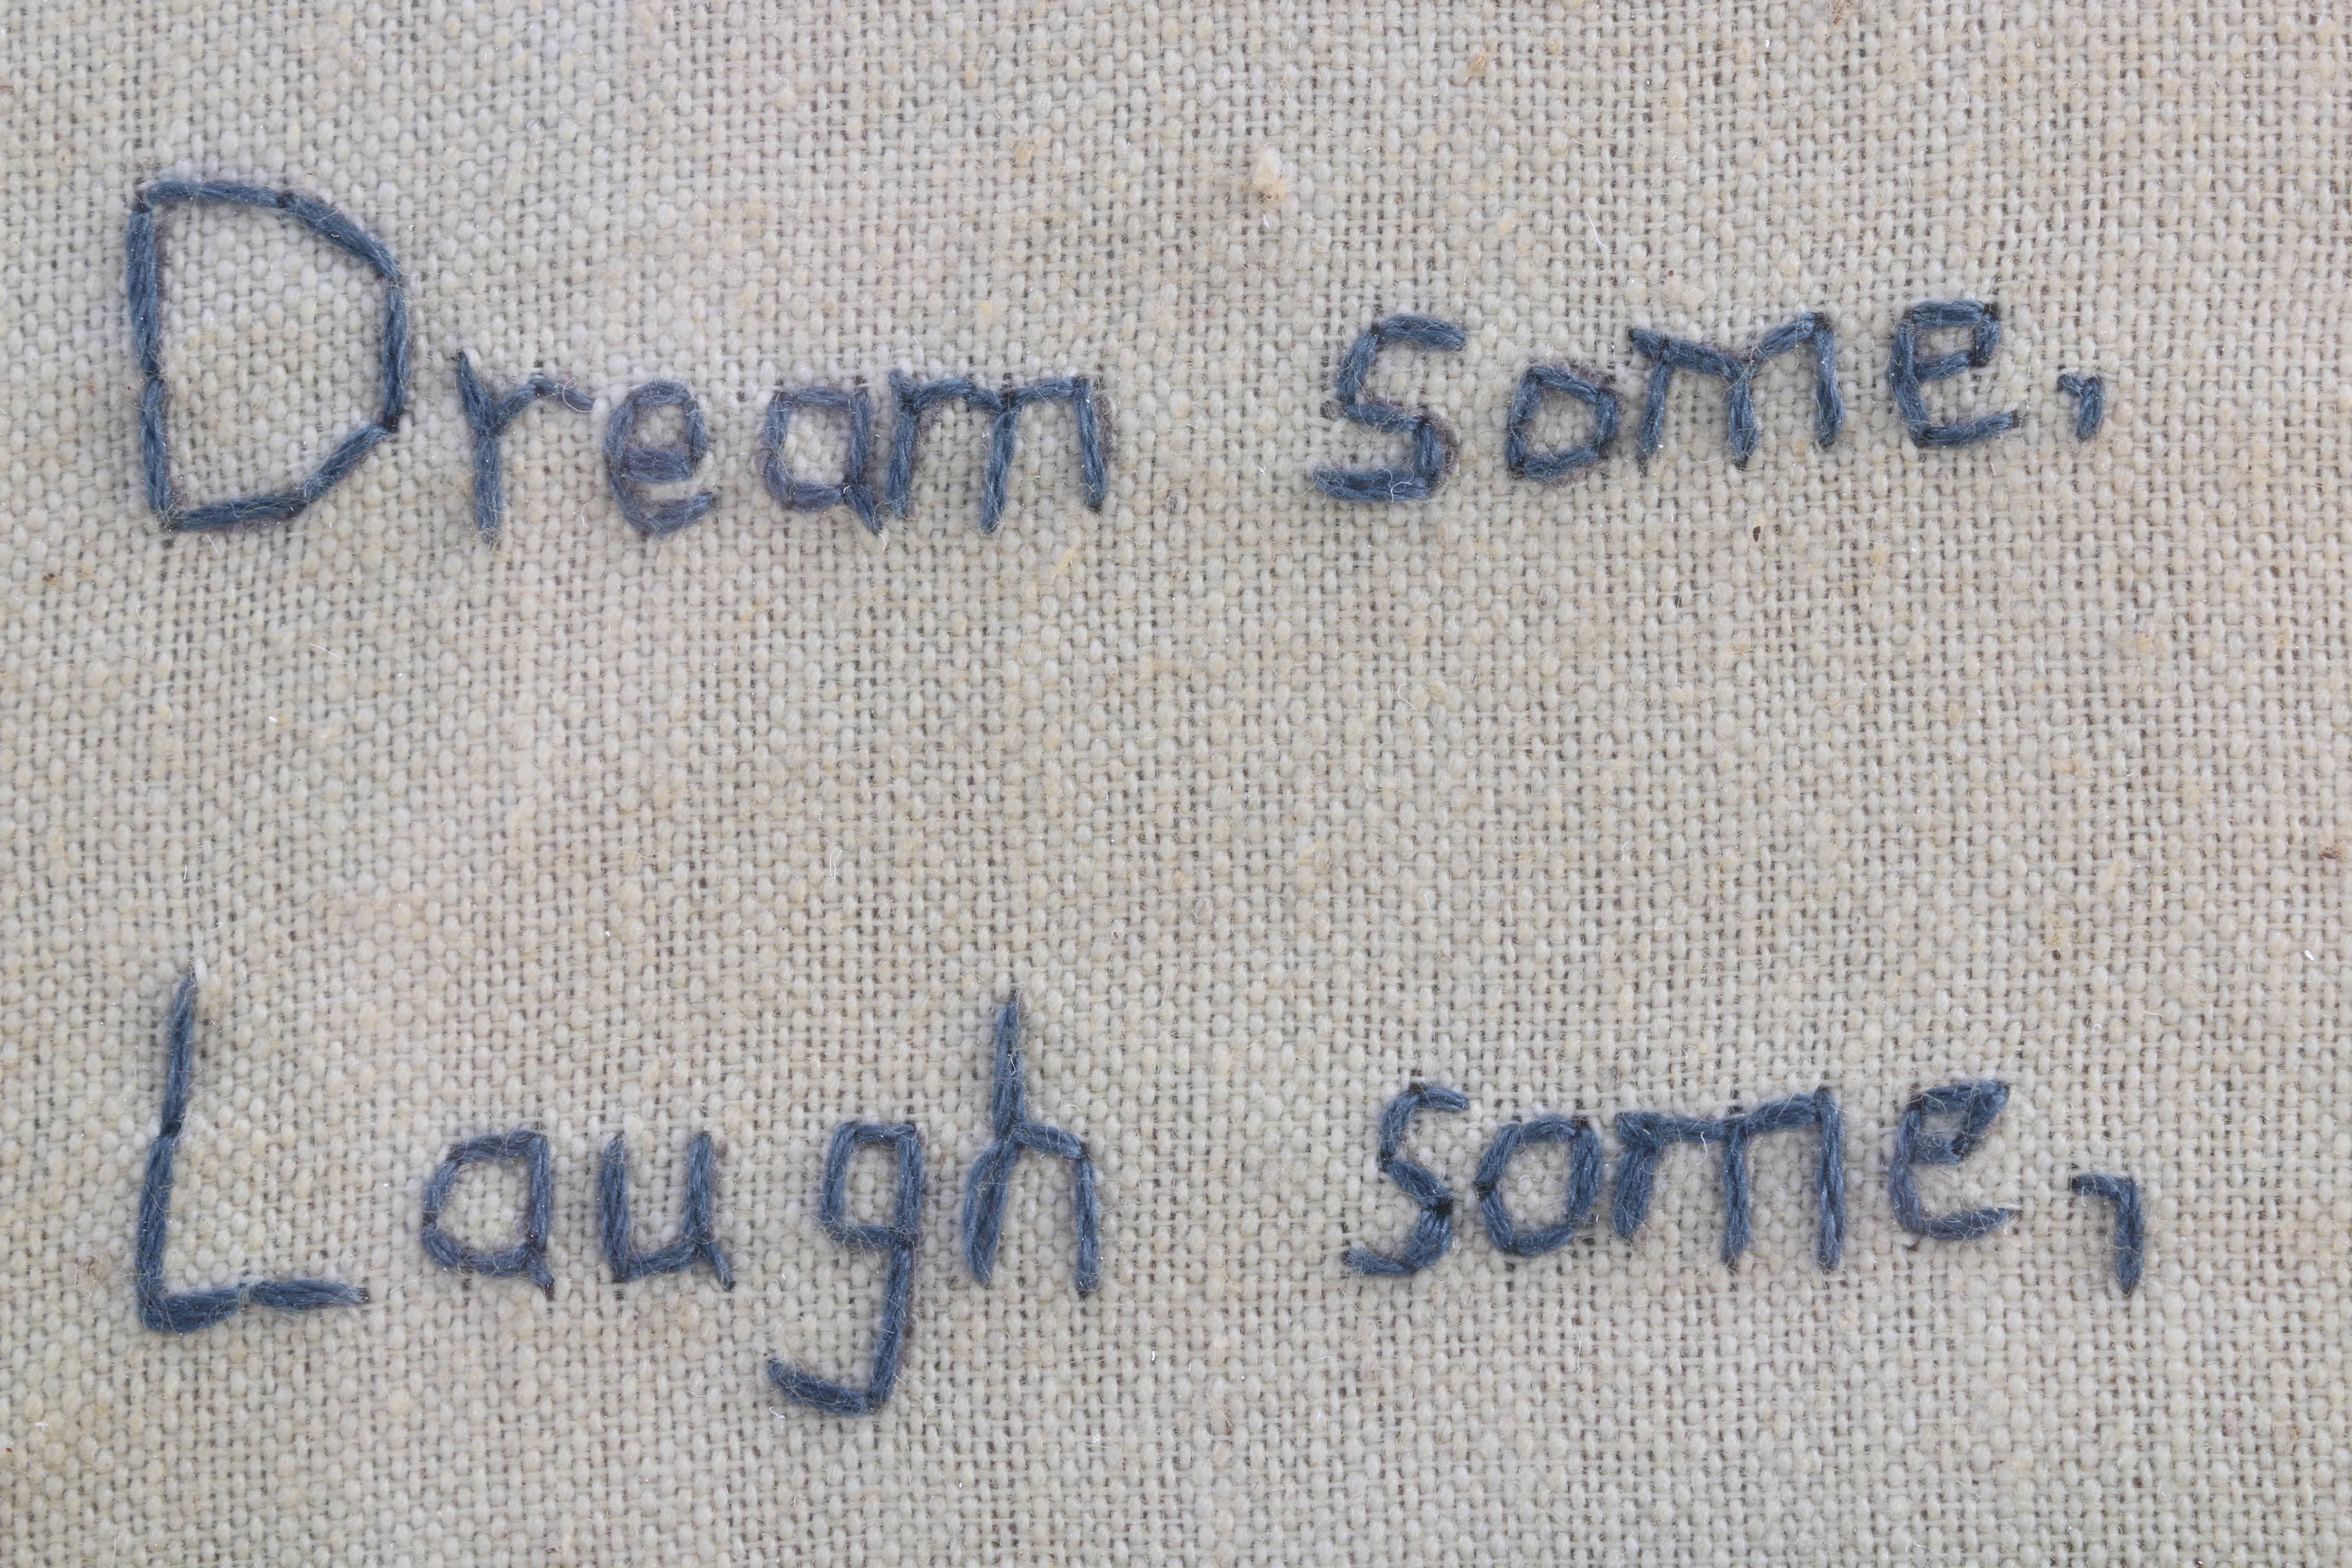 Dream some,
Laugh some,